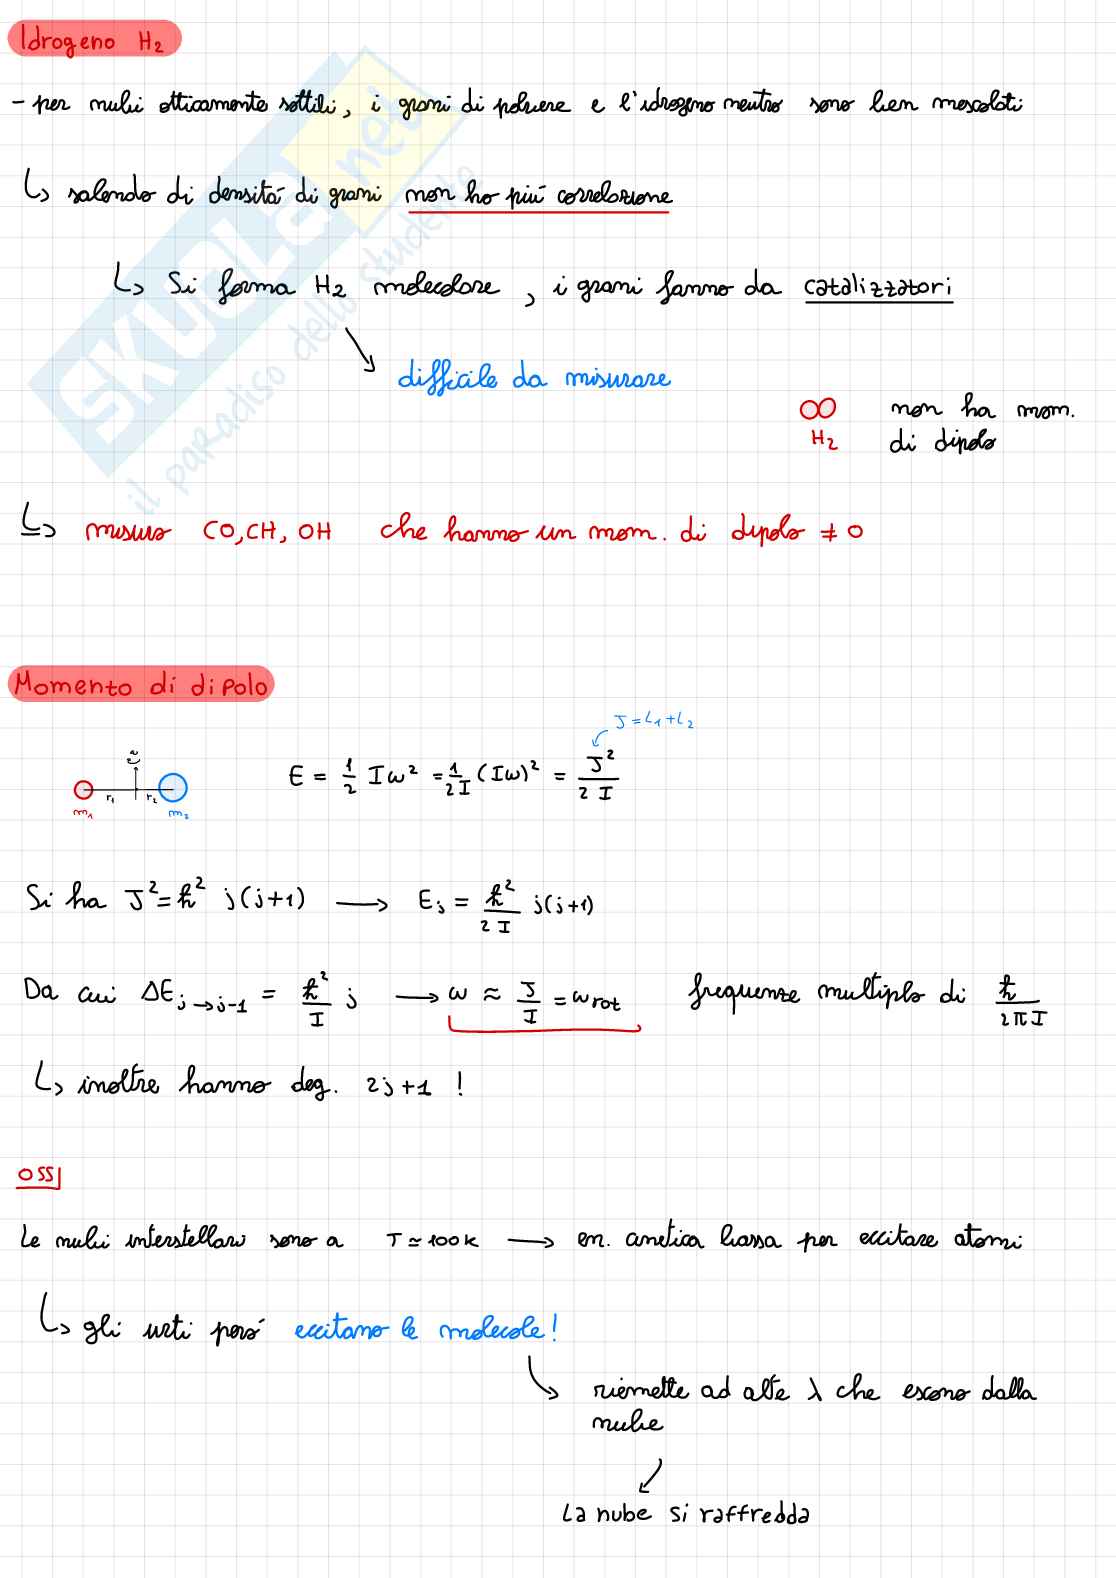 Idrogeno H₂
- per nubi otticamente sottili, i grani di polvere e l'idrogeno neutro sono ben mescolati
↳ salendo di densitá di grani non ho piú correlazione
↳ Si forma H₂ molecolare, i grani fanno da catalizzatori
↘ difficile da misurare
non ha mom.
H₂ di dipolo
↳ misuro CO, CH, OH che hanno un mom. di dipolo ≠ 0
Momento di dipolo
J = L₁ + L₂
E = 1/2 I ω² = 1/2I (Iω)² = J²/2I
r₁ r₂
m₁ m₂
Si ha J² = ħ² j(j+1) → Eⱼ = ħ²/2I j(j+1)
Da cui ΔE j→j-1 = ħ²/I j → ω ≈ J/I = ωrot frequenze multiplo di ħ/2πI
↳ inoltre hanno deg. 2j+1 !
OSS
Le nubi interstellari sono a T ≃ 100K → en. cinetica bassa per eccitare atomi
↳ gli urti peró eccitano le molecole!
↘ riemette ad alte λ che escono dalla
nube
↙
La nube si raffredda
SKUOLA.net
il paradiso dello studente